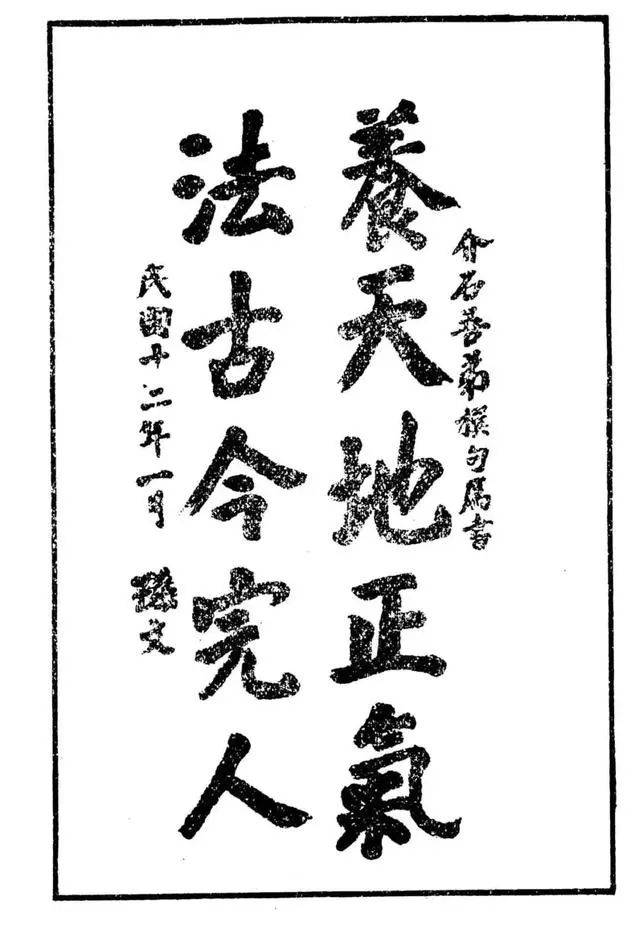 介石吾弟撰句屬書
養天地正氣
法古今完人
民國十二年一月 孫文